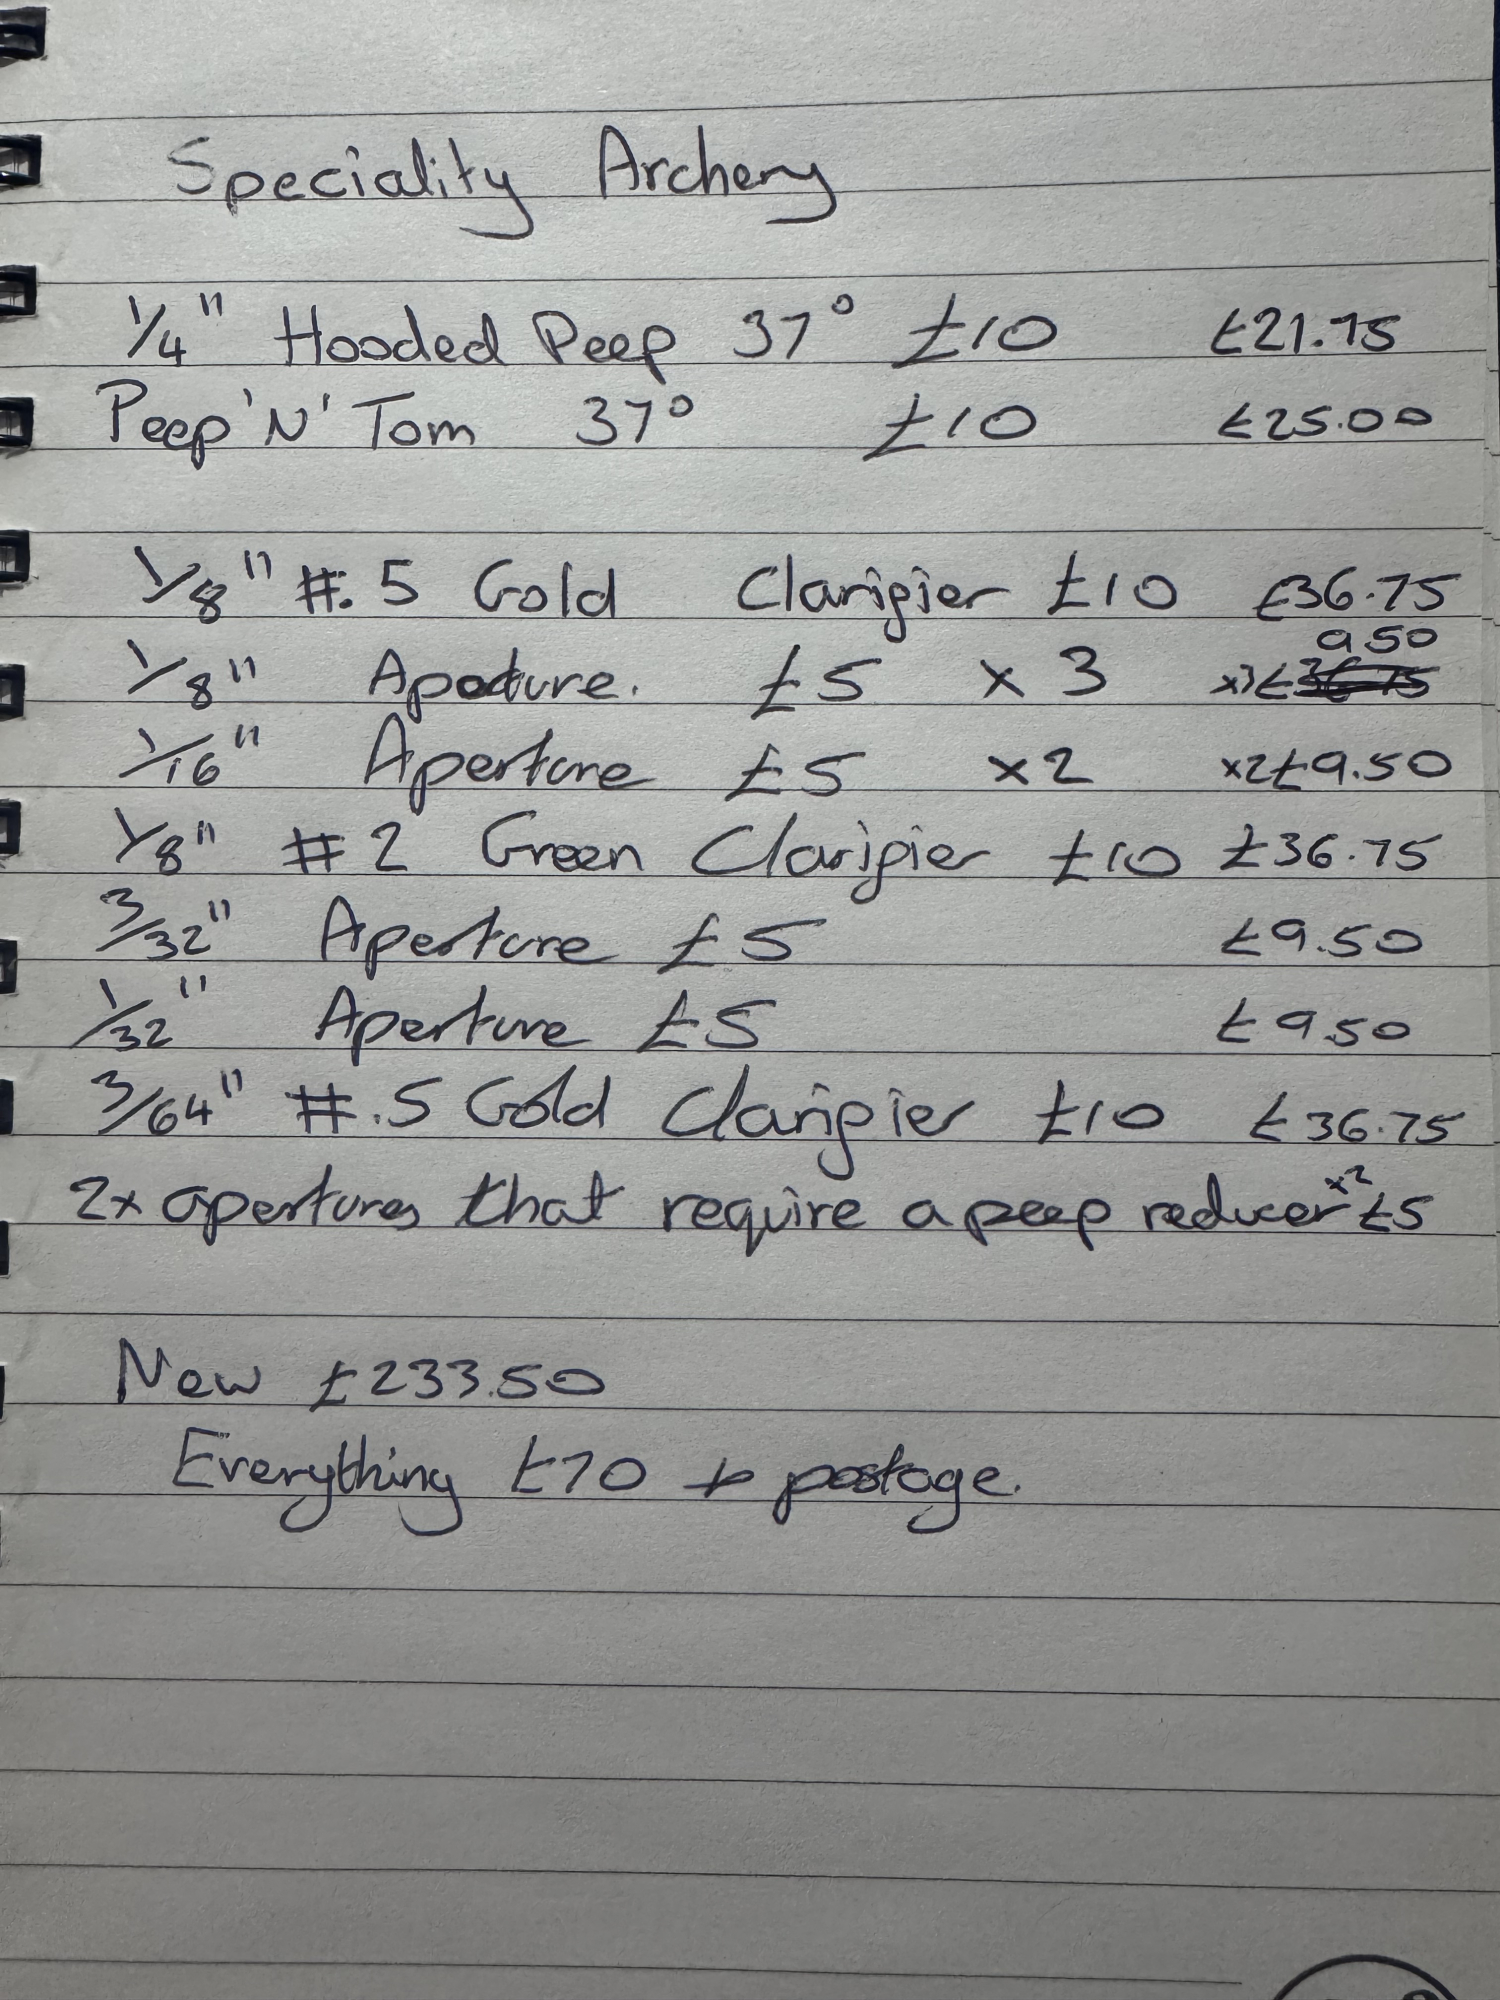 Speciality Archery
1/4" Hooded Peep 37° £10 £21.75
Peep 'N' Tom 37° £10 £25.00
1/8" #.5 Gold Clarifier £10 £36.75
1/8" Aperture. £5 x 3 x3 £9.50
1/16" Aperture £5 x2 x2 £9.50
1/8" #2 Green Clarifier £10 £36.75
3/32" Aperture £5 £9.50
1/32" Aperture £5 £9.50
3/64" #.5 Gold Clarifier £10 £36.75
2x apertures that require a peep reducer x2 £5
New £233.50
Everything £70 + postage.